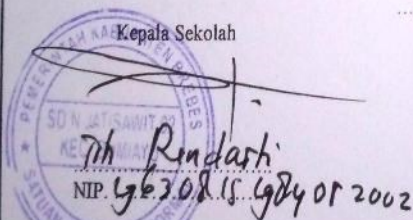 Kepala Sekolah
PEMERINTAH KABUPATEN BREBES
SD N JATISAWIT 02
KEC. BUMIAYU
Rindarti
NIP. 19630815 198405 2002